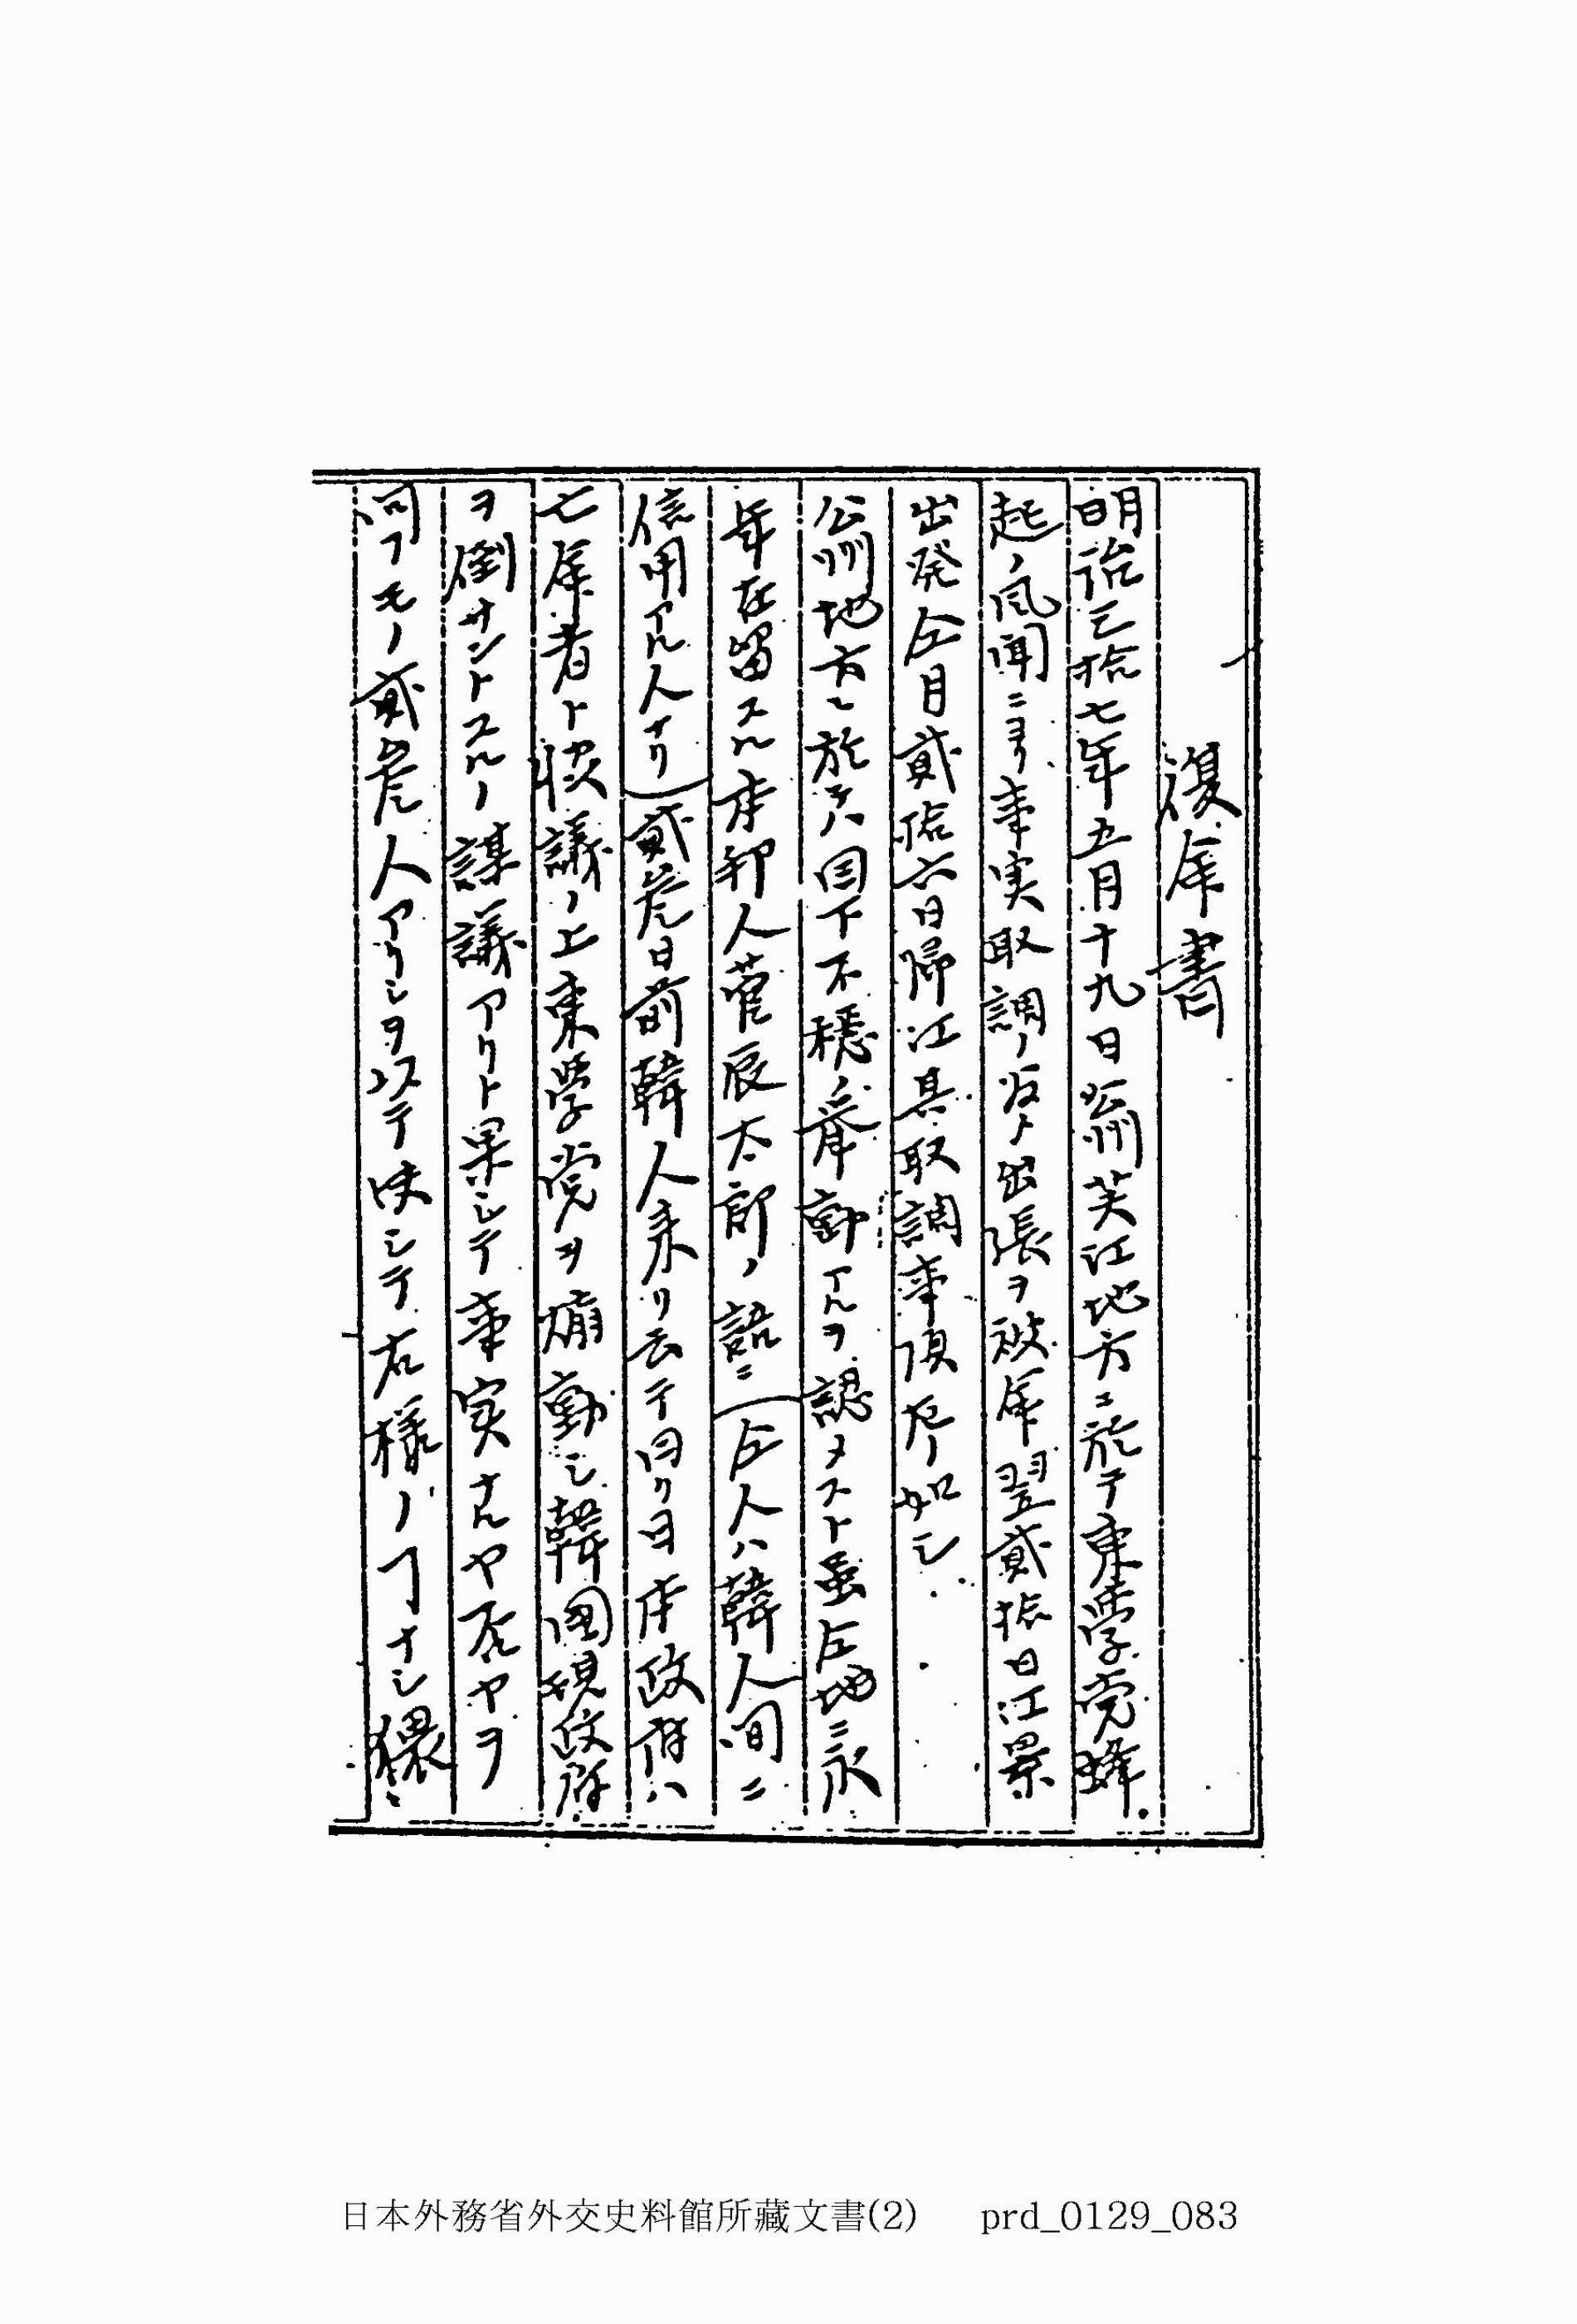 復命書
明治三拾七年五月十九日公州芙江地方ニ於テ東学党蜂
起ノ風聞ニヨリ事実取調ノ為メ出張ヲ被命翌貳拾日江景
出発仝月貳拾六日帰江其取調事項左ノ如シ
公州地方ニ於テハ目下不穏ノ挙動アルヲ認メスト虽仝地ニ永
年在留スル本邦人菅辰太郎ノ話ニ（仝人ハ韓人間ニ
信用アル人ナリ）貳三日前韓人来リ云テ曰ク日本政府ハ
亡命者ト協議ノ上東学党ヲ煽動シ韓国現政府
ヲ倒サントスルノ謀議アリト果シテ事実ナルヤ否ヤヲ
問フモノ貳三人アリシヲ以テ決シテ右様ノヿナシ猥
日本外務省外交史料館所藏文書(2) prd_0129_083